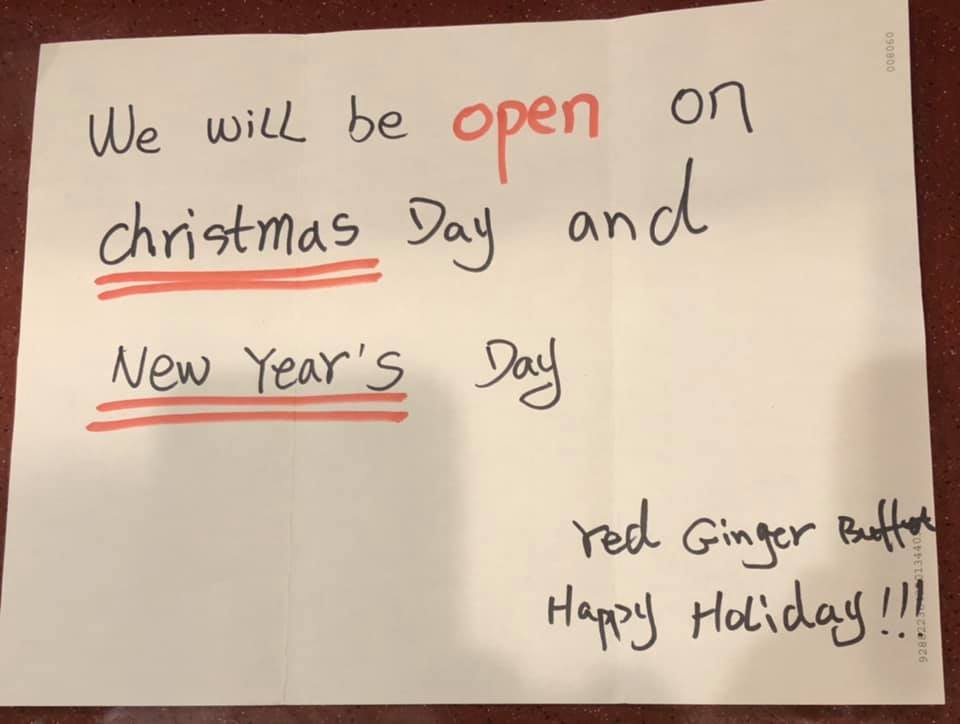 We will be open on
christmas Day and
New Year's Day
red Ginger Buffet
Happy Holiday!!!
008060